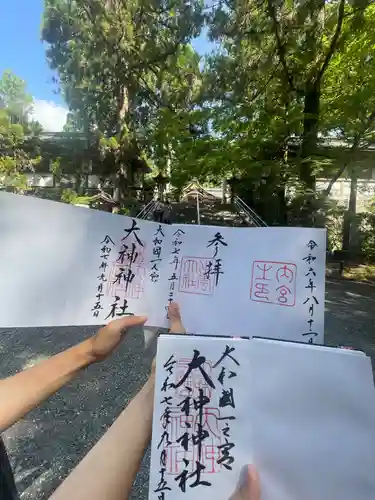 令和六年八月十
内宮
参拝
令和七年五月
大和國一之宮
大神神社
令和七年九月十五日
大和國一之宮
大神神社
令和七年九月十五日